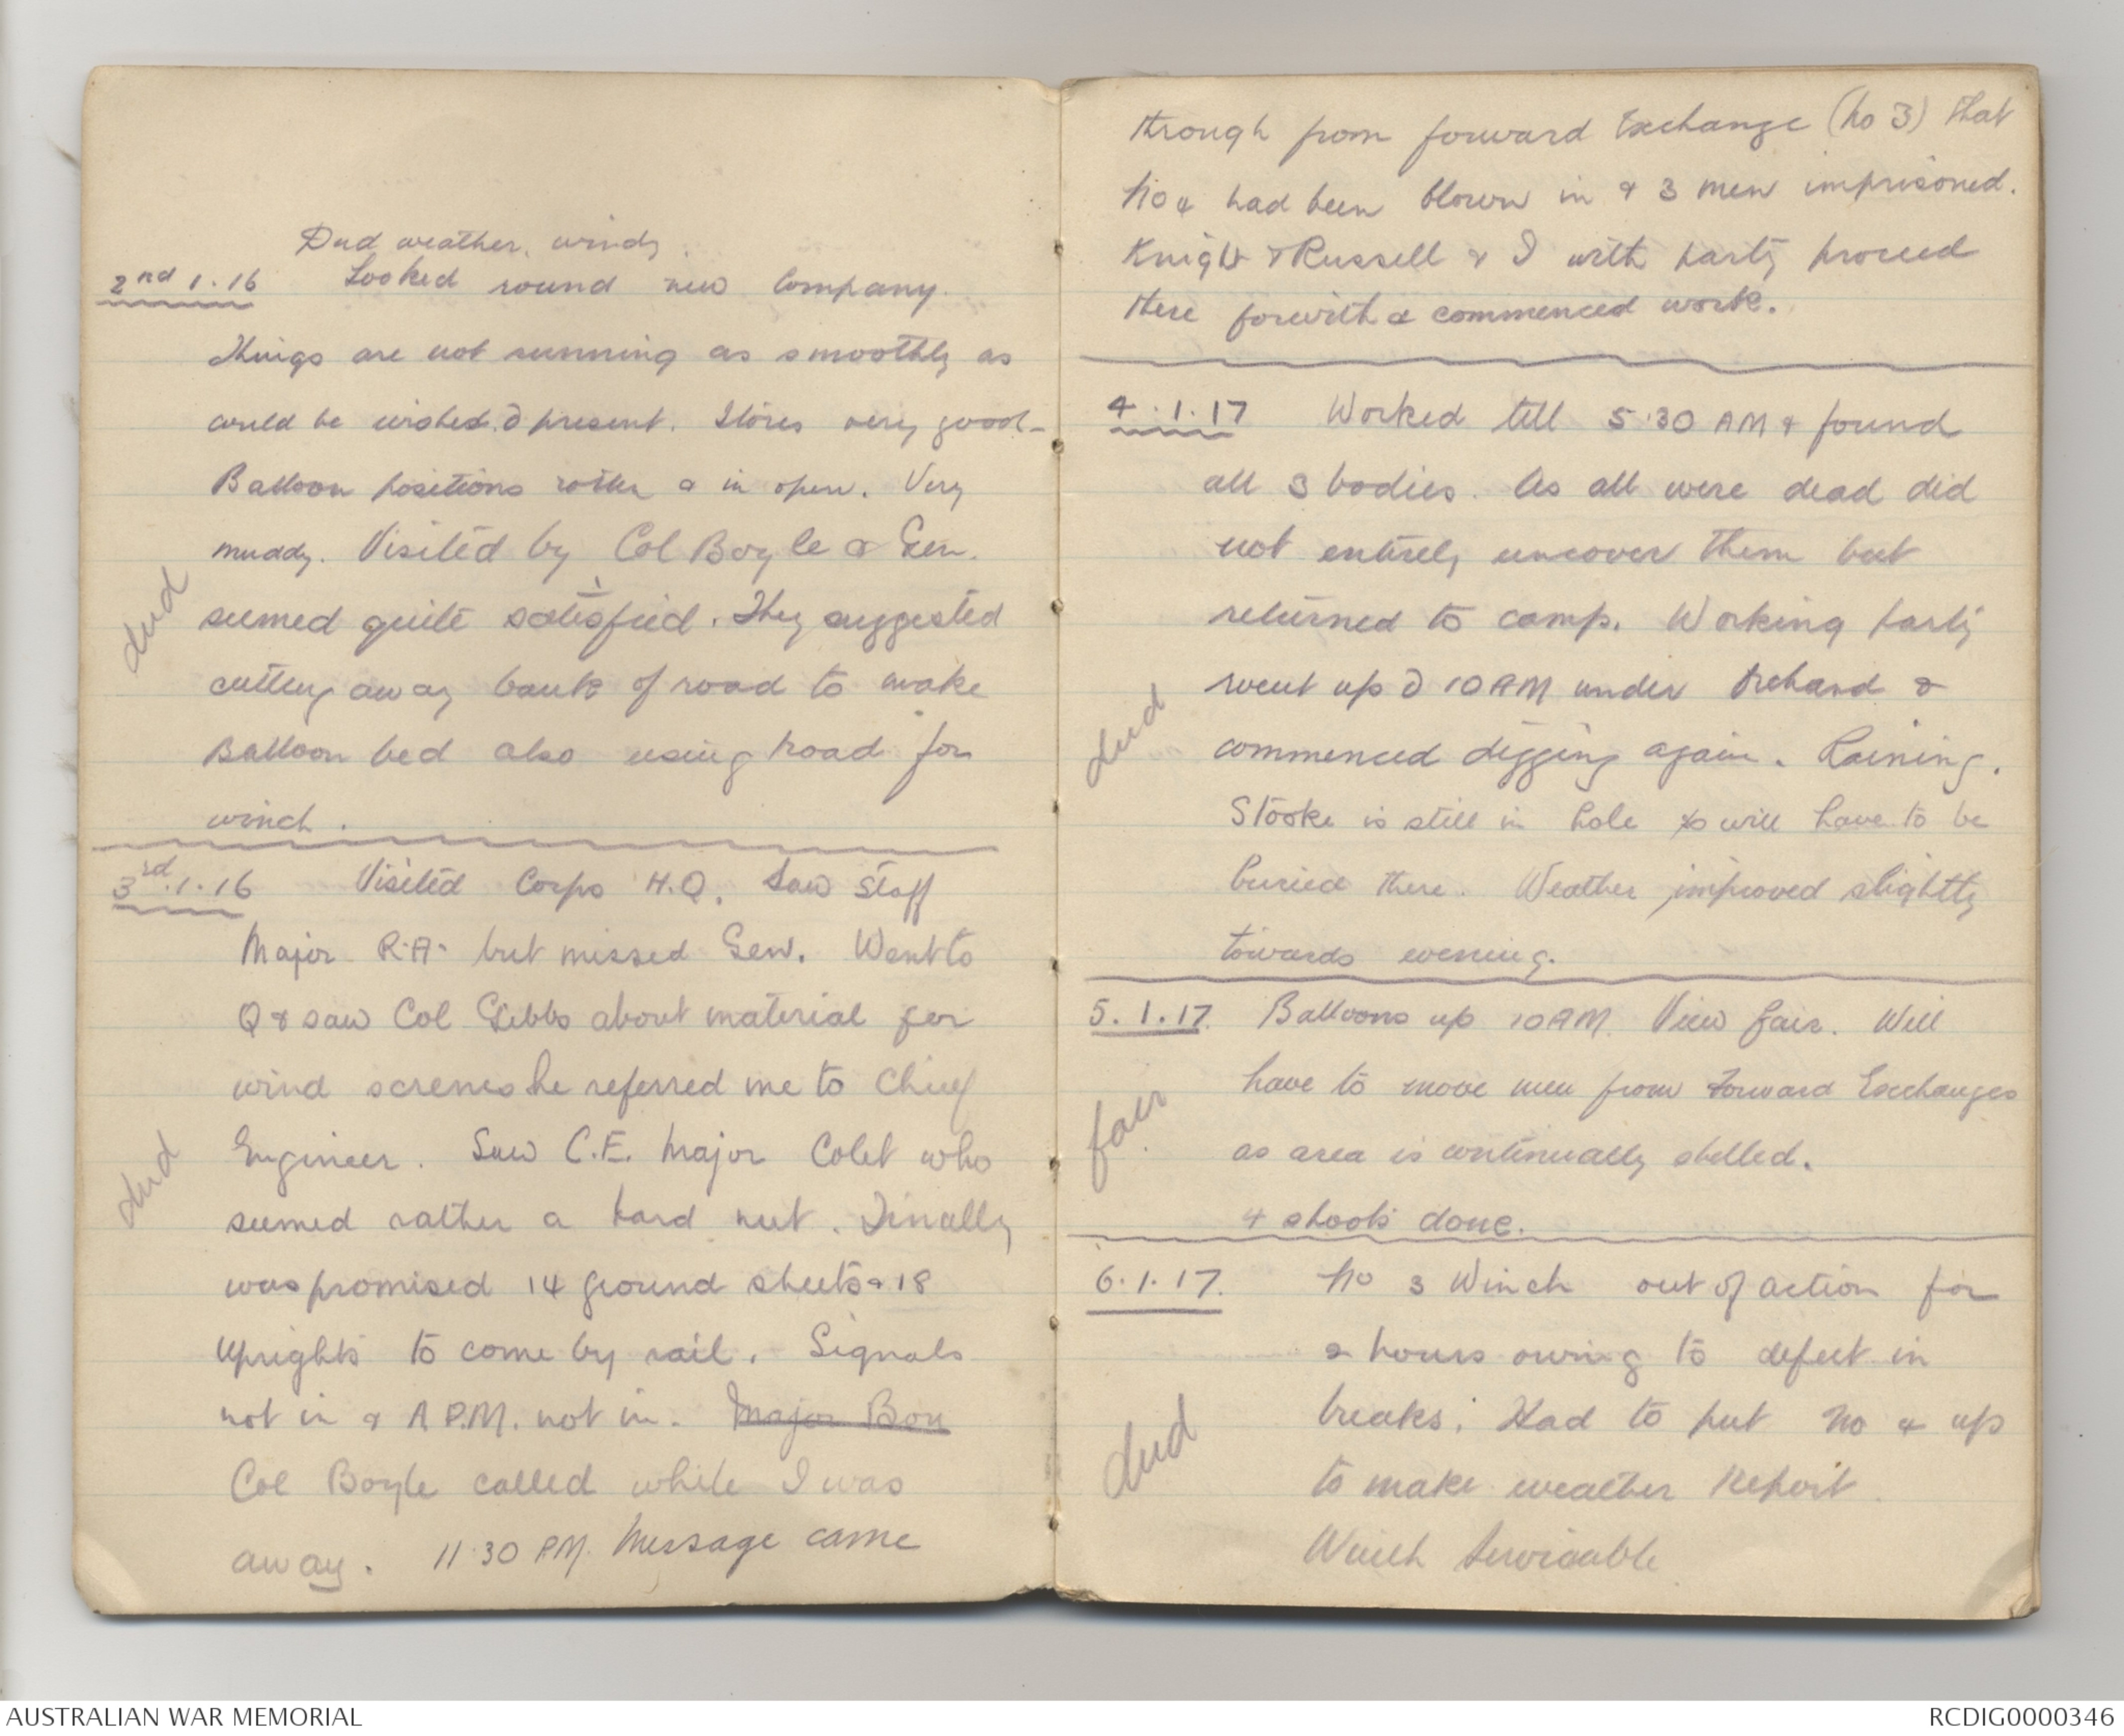 Dud weather. windy.
2nd 1.16 Looked round new Company.
Things are not running as smoothly as
could be wished @ present. Stores very good -
Balloon positions rotten & in open. Very
muddy. Visited by Col Boyle & Gen.
seemed quite satisfied. They suggested
dud
cutting away bank of road to make
Balloon bed also using road for
winch.
3rd.1.16 Visited Corps H.Q. Saw Staff
Major R.A. but missed Gen. Went to
Q & saw Col Gibbs about material for
wind screnes he referred me to Chief
Engineer. Saw C.E. Major Colet who
dud
seemed rather a hard nut. Finally
was promised 14 ground sheets & 18
uprights to come by rail. Signals
not in & A.P.M. not in. Major Bou
Col Boyle called while I was
away. 11.30 PM. Message came
through from forward Exchange (No 3) that
No 4 had been blown in & 3 men imprisoned.
Knight & Russell & I with party proceed
there forwith & commenced work.
4.1.17 Worked till 5.30 AM & found
all 3 bodies. As all were dead did
not entirely uncover them but
returned to camp. Working party
went up @ 10 AM under &
dud
commenced digging again. Raining.
Stooke is still in hole & will have to be
buried there. Weather improved slightly
towards evening.
5.1.17. Balloons up 10 AM. View fair. Will
have to move men from Forward Exchanges
fair
as area is continually shelled.
4 shoots done.
6.1.17. No 3 Winch out of action for
2 hours owing to defect in
breaks. Had to put No 4 up
dud
to make weather Report.
Winch Serviceable
AUSTRALIAN WAR MEMORIAL
RCDIG0000346